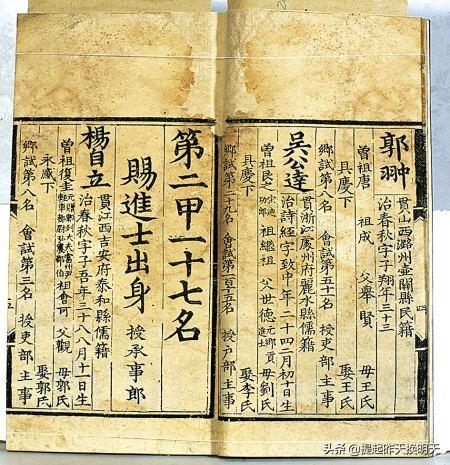 郭翀
貫山西潞州壺關縣民籍
治春秋字子翔年三十三
曾祖唐 祖成 父舉賢 母王氏
具慶下 娶王氏
鄉試第八名 會試第五十一名 授吏部主事
吳公達
貫浙江處州府麗水縣儒籍
治詩經字致中年二十四二月初十日生
曾祖良之宋迪功郎 祖繼祖 父世德元鄉貢進士 母劉氏
具慶下 娶李氏
鄉試第二十九名 會試第一百十五名 授戶部主事
四
第二甲一十七名
賜進士出身 授承事郎
楊自立
貫江西吉安府泰和縣儒籍
治春秋字子吾年三十八八月十一日生
曾祖復圭 祖會可 父觀 母郭氏
永感下 娶郭氏
鄉試第八名 會試第三名 授吏部主事
五
头条 @提起昨天换明天